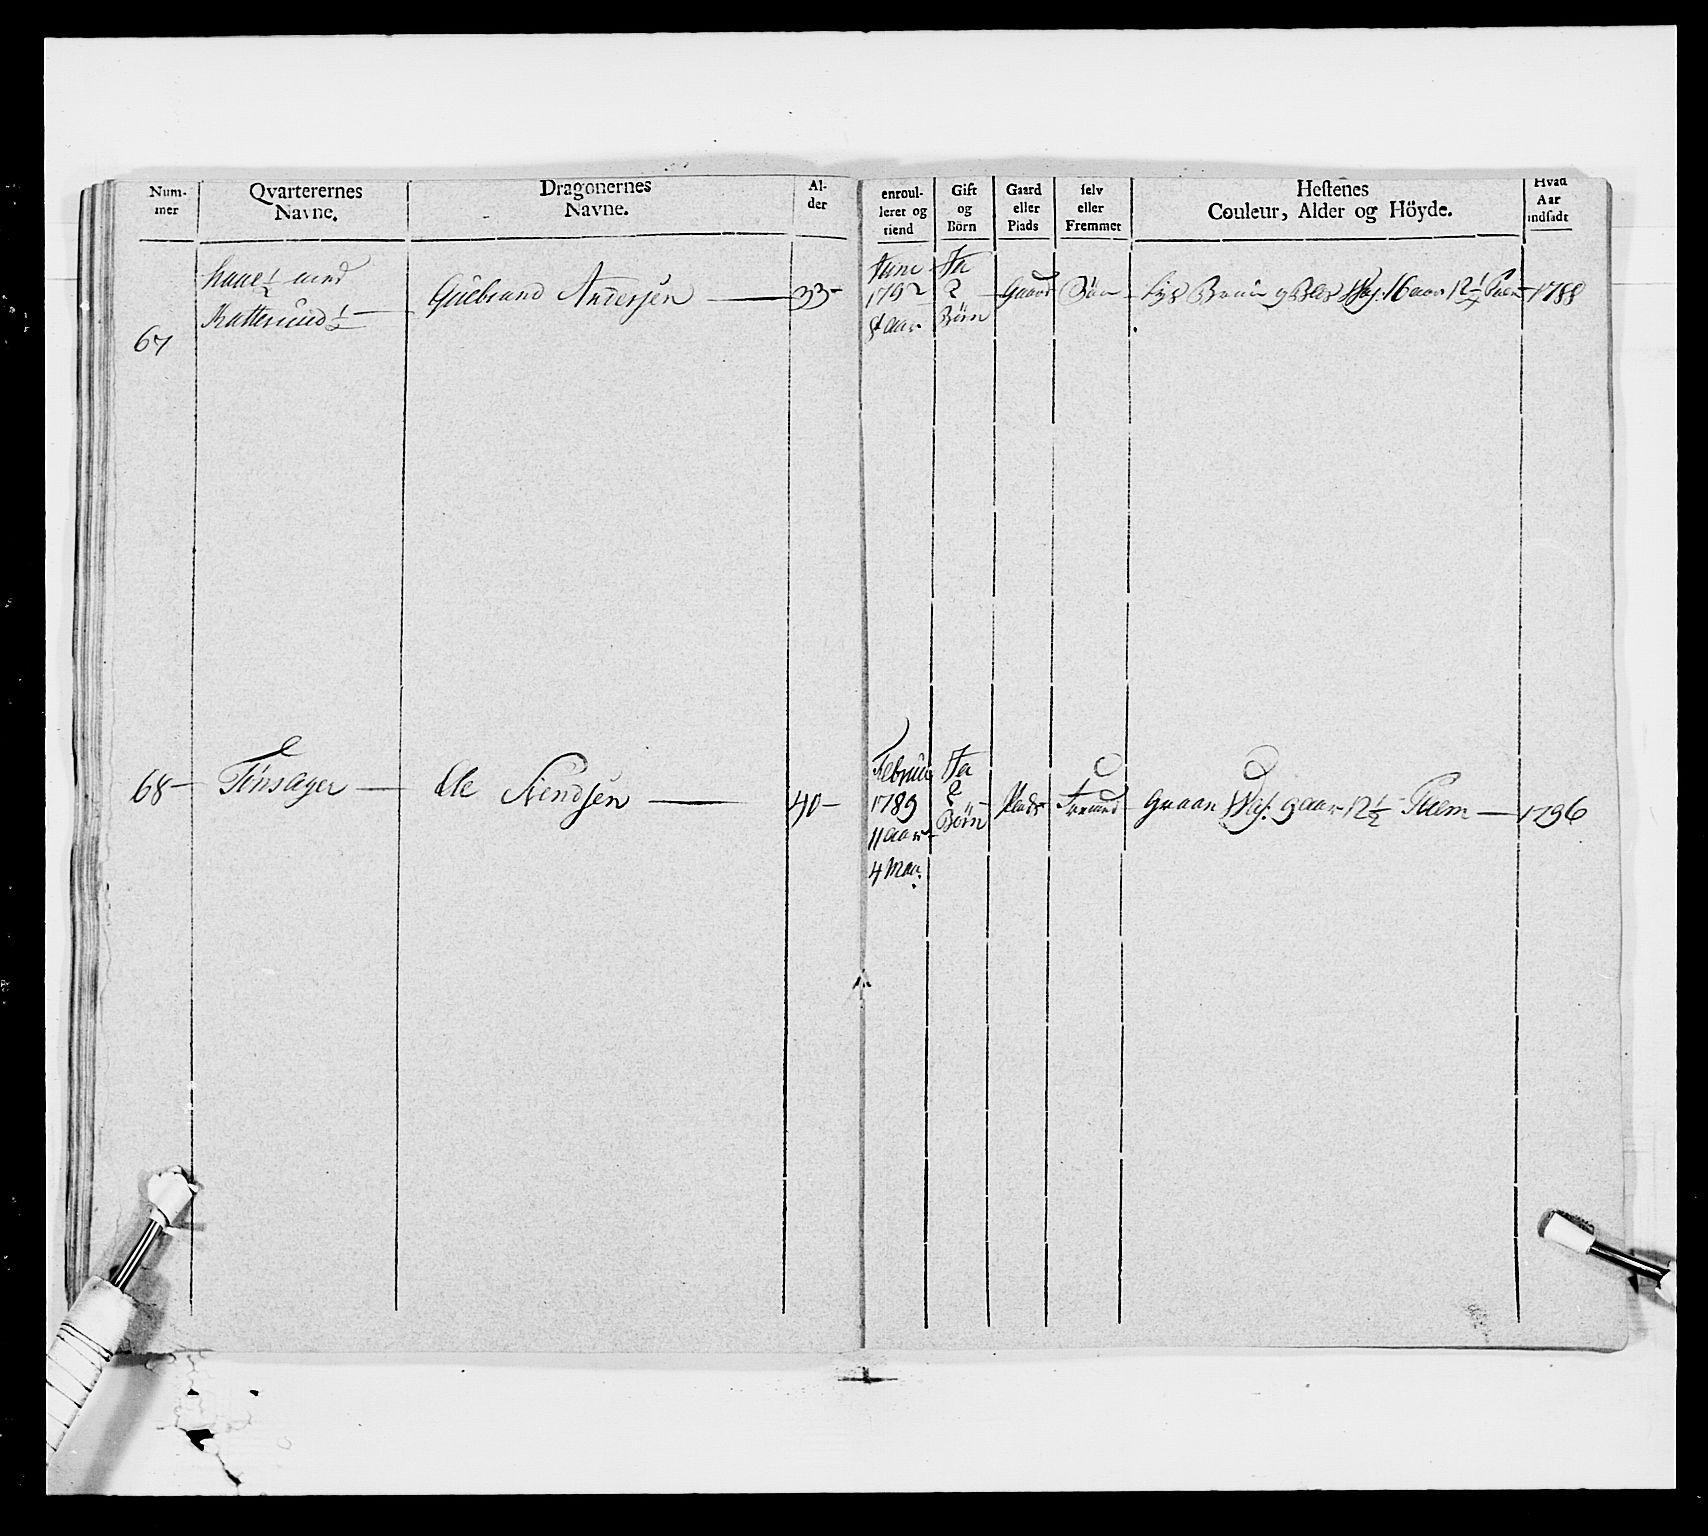 Num-
mer
Qvarterernes
Navne.
Dragonernes
Navne.
Al-
der
enroul-
leret og
tiend
Gift
og
Börn
Gaard
eller
Plads
selv
eller
Fremmet
Hestenes
Couleur, Alder og Höyde.
Hvad
Aar
indsadt
67
Haae ½ med
Katterüud ½ —
Güebrand Andersen —
33 -
Juni
1792
8 aar.
Ja
2
Börn
Gaard
Böe
Lys Bruun Blis 16 aar 12 ½
1788
68 —
Tönsager —
Ole Svendsen —
40 -
Februa
1789
11 aar
4 Maa.
Ja
2
Börn
Plads
Fremed
Graae 9 aar 12 ½ Quem —
1796